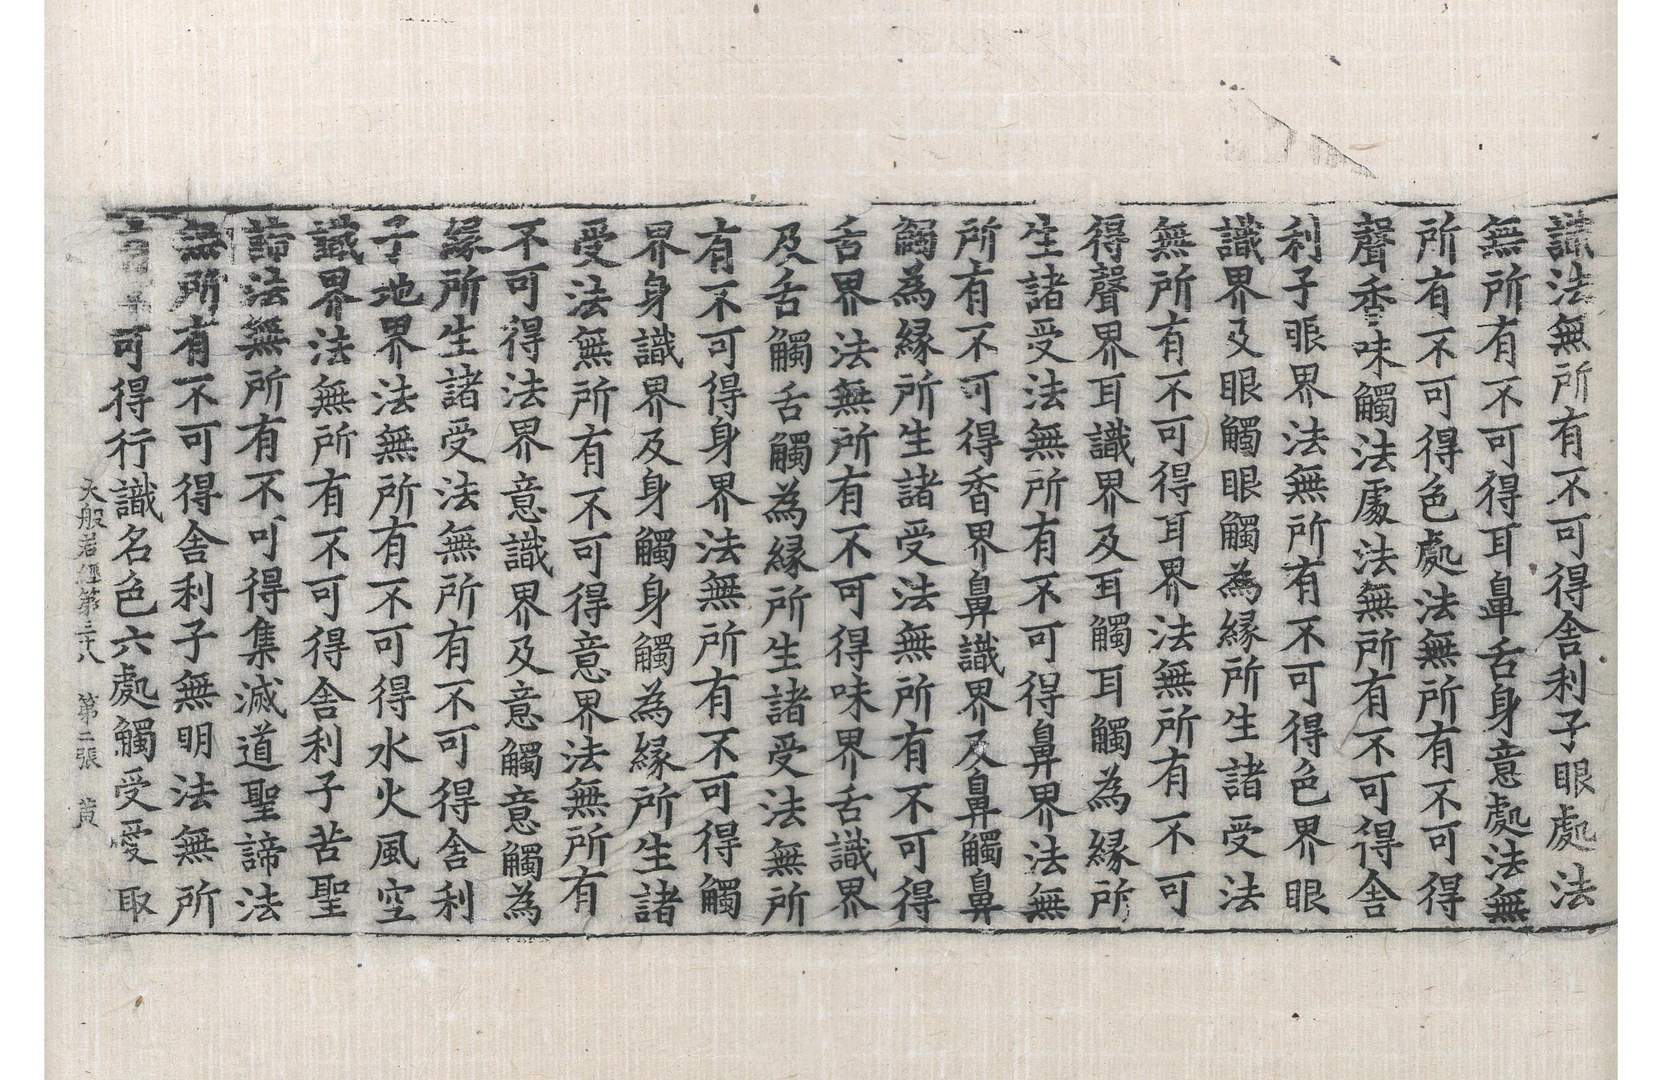 識法無所有不可得舎利子眼處法
無所有不可得耳鼻舌身意處法無
所有不可得色處法無所有不可得
聲香味觸法處法無所有不可得舎
利子眼界法無所有不可得色界眼
識界及眼觸眼觸為緣所生諸受法
無所有不可得耳界法無所有不可
得聲界耳識界及耳觸耳觸為緣所
生諸受法無所有不可得鼻界法無
所有不可得香界鼻識界及鼻觸鼻
觸為緣所生諸受法無所有不可得
舌界法無所有不可得味界舌識界
及舌觸舌觸為緣所生諸受法無所
有不可得身界法無所有不可得觸
界身識界及身觸身觸為緣所生諸
受法無所有不可得意界法無所有
不可得法界意識界及意觸意觸為
緣所生諸受法無所有不可得舎利
子地界法無所有不可得水火風空
識界法無所有不可得舎利子苦聖
諦法無所有不可得集滅道聖諦法
無所有不可得舎利子無明法無所
可得行識名色六處觸受愛取
大般若經第三十八 第二張 黃